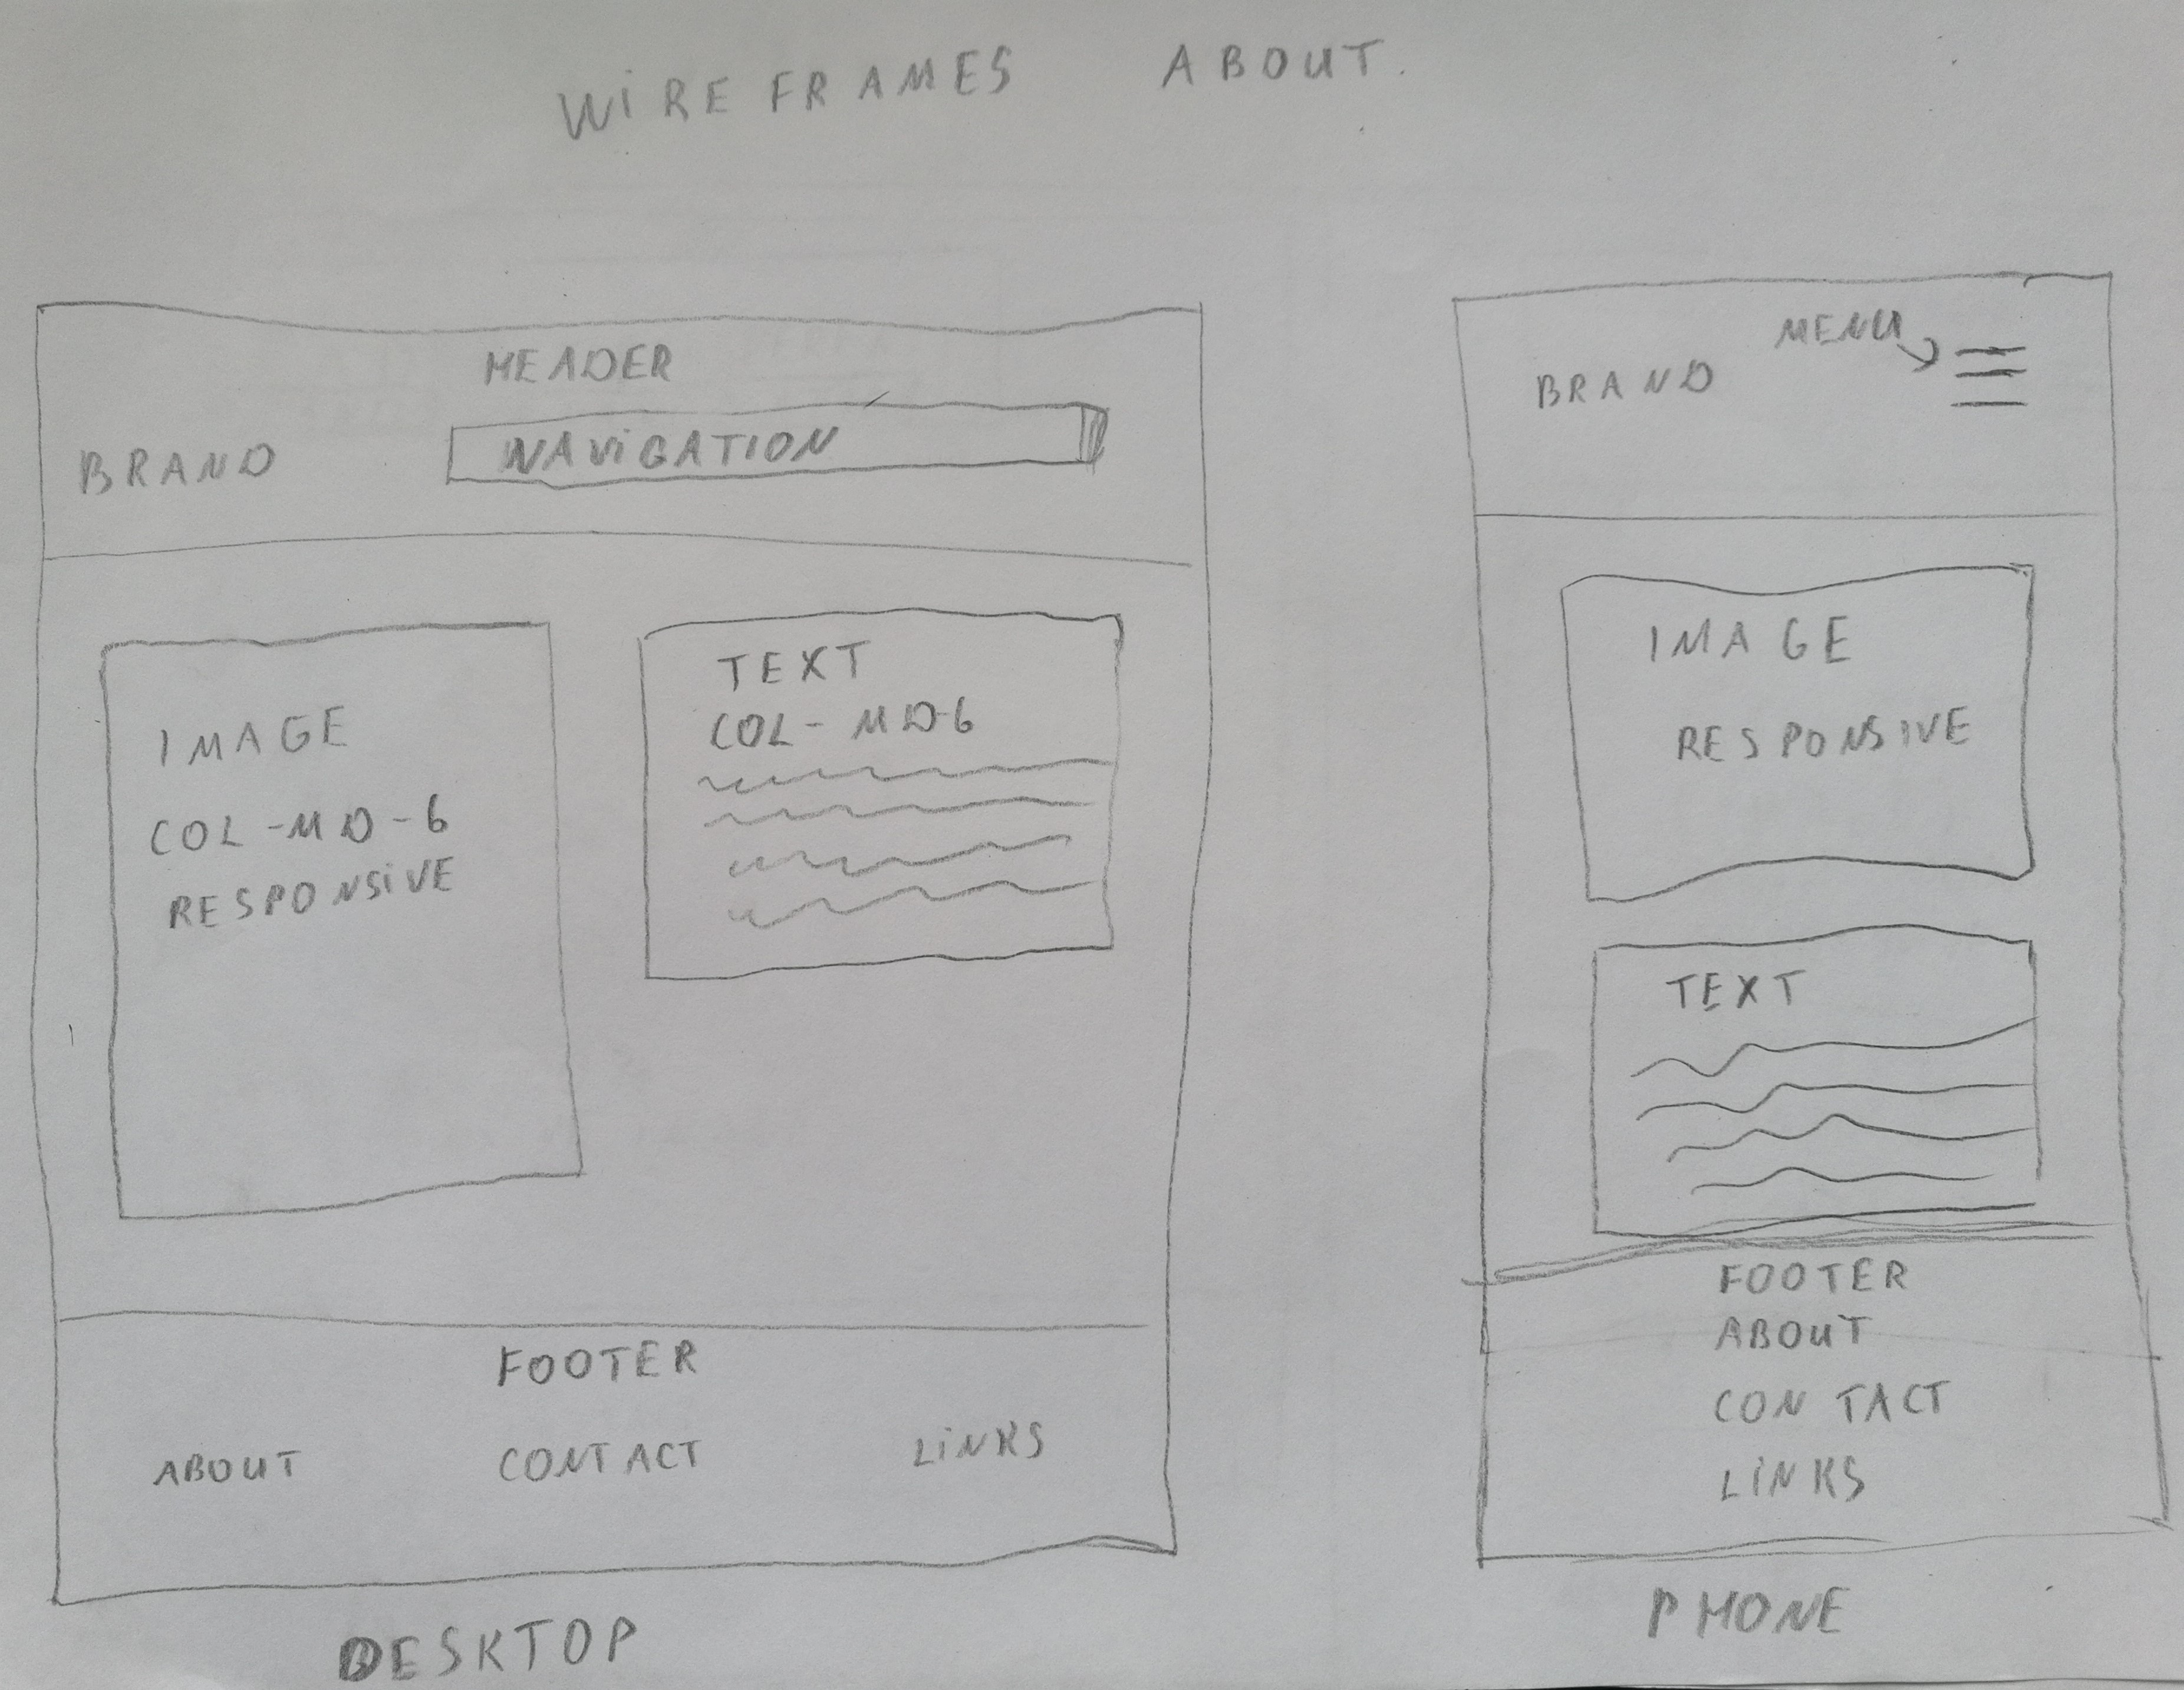 WIREFRAMES ABOUT.
HEADER
BRAND
NAVIGATION
IMAGE
COL-MD-6
RESPONSIVE
TEXT
COL-MD-6
FOOTER
ABOUT
CONTACT
LINKS
DESKTOP
MENU
BRAND
IMAGE
RESPONSIVE
TEXT
FOOTER
ABOUT
CONTACT
LINKS
PHONE